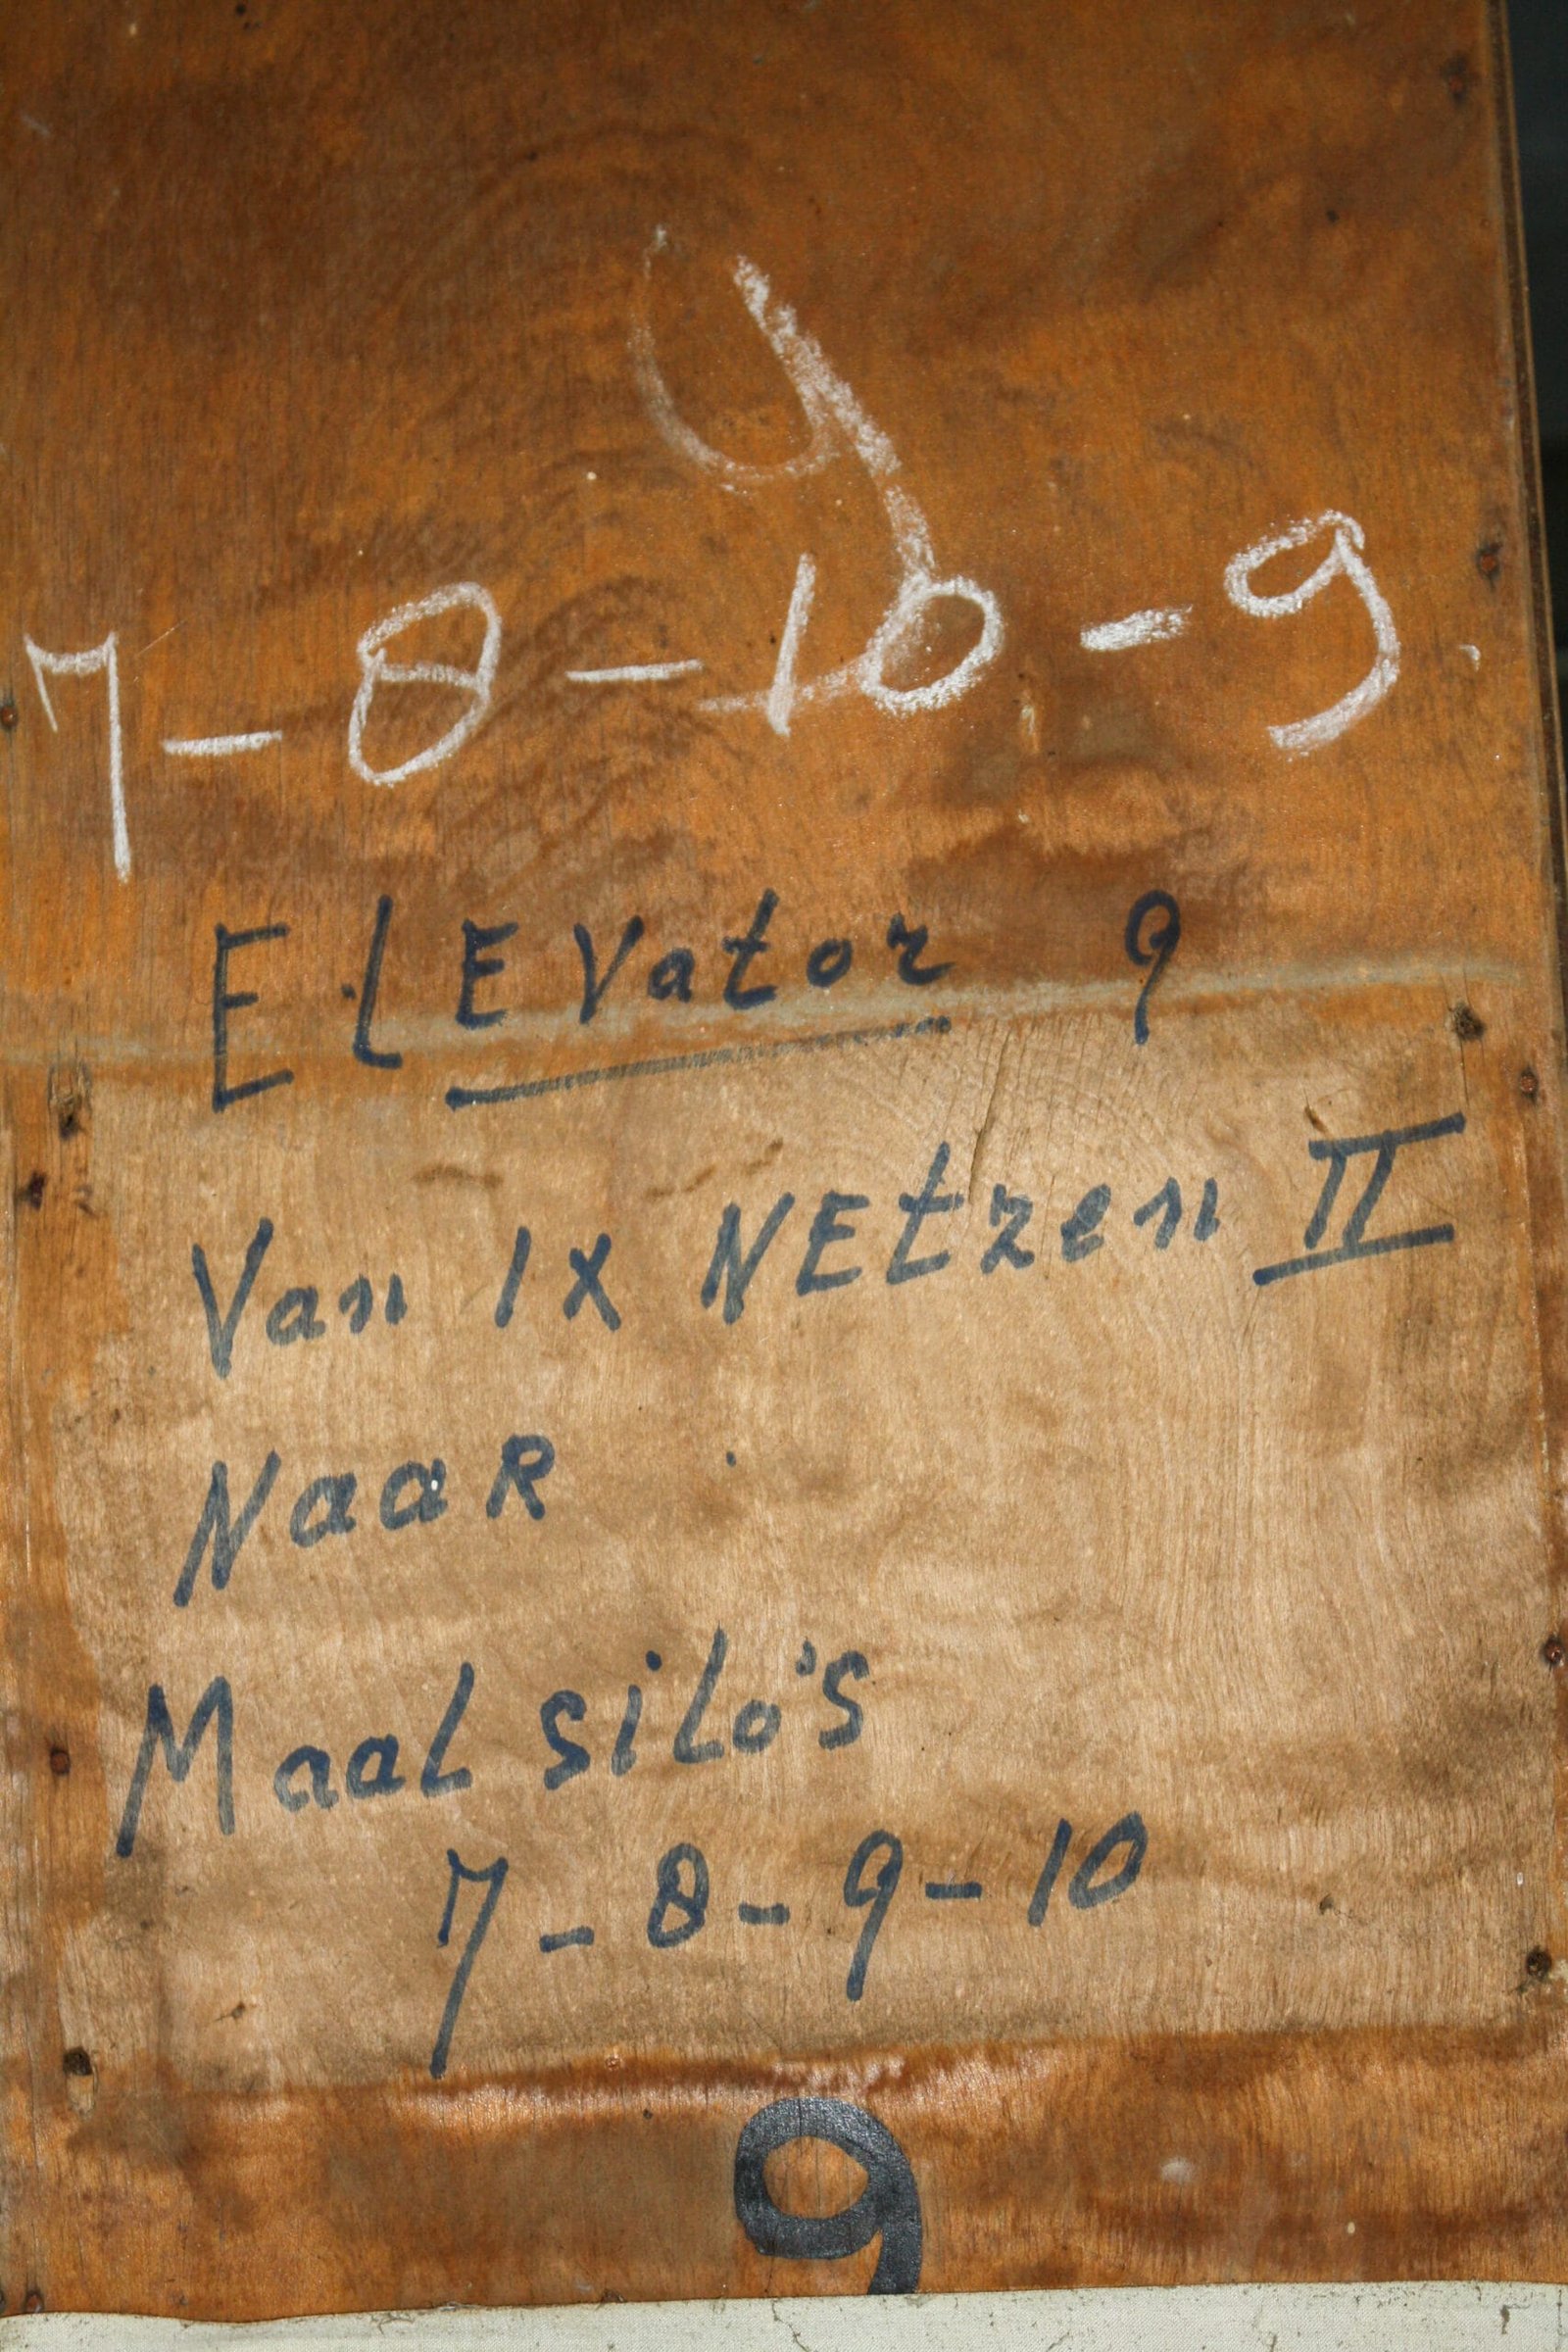 9
7-8-10-9.
ElEvator 9
Van 1x NEtzen II
NaaR
Maal silo's
7-8-9-10
9